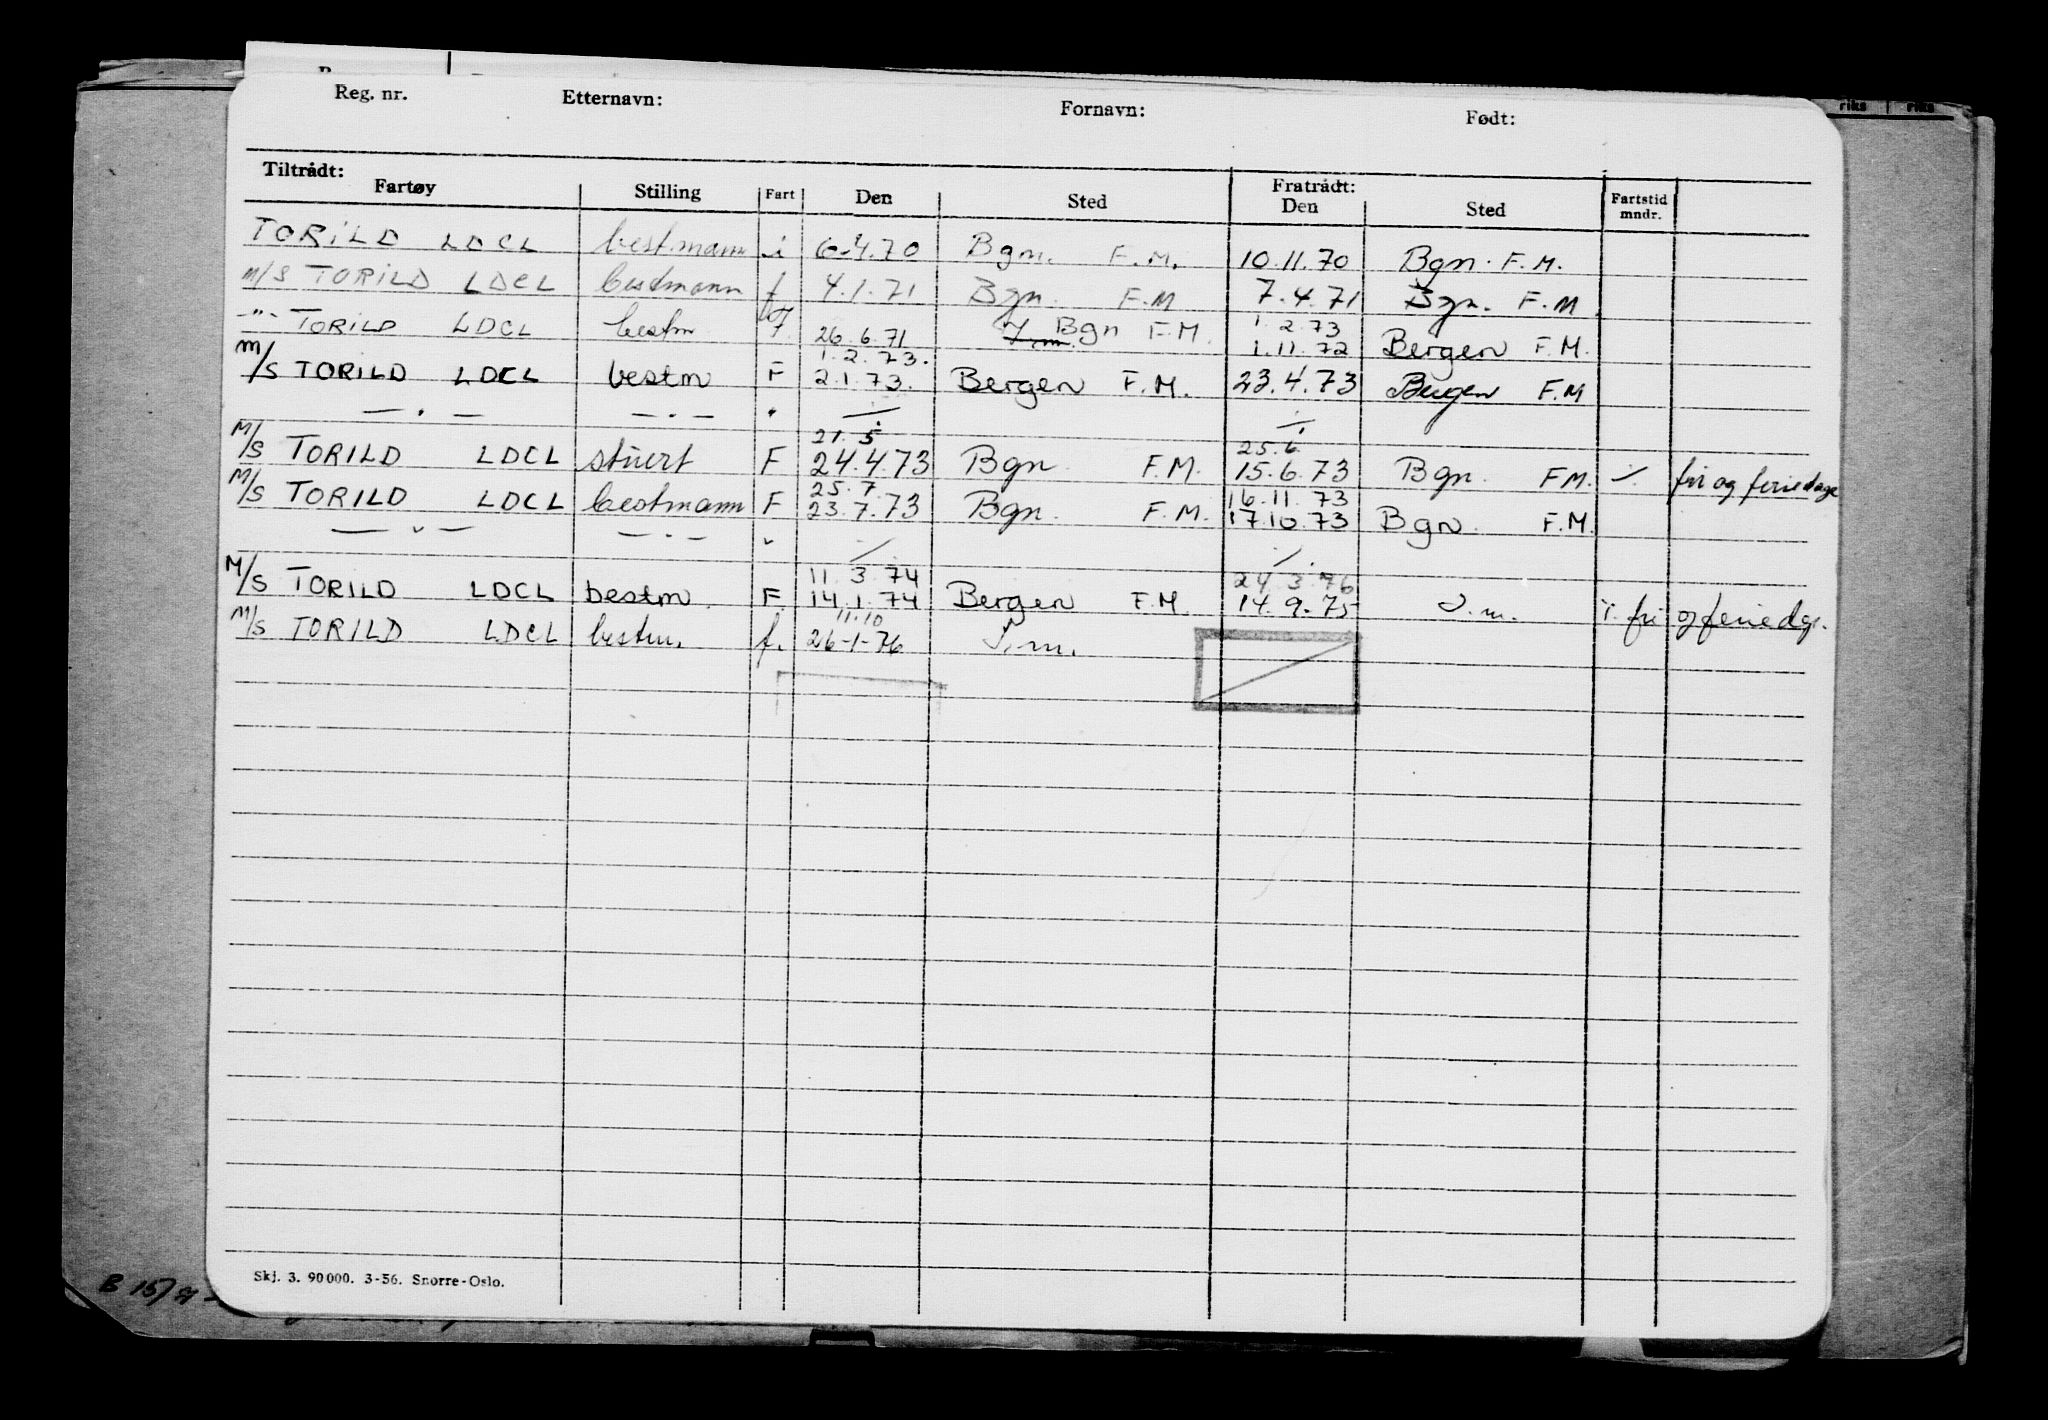 Reg. nr. Etternavn: Fornavn: Født:
Tiltrådt: Fratrådt:
Fartøy Stilling Fart Den Sted Den Sted Fartstid mndr.
TORILD LDCL bestmann i 6-4.70 Bgn. F.M. 10.11.70 Bgn. F.M.
M/S TORILD LDCL bestmann f 4.1.71 Bgn. F.M 7.4.71 Bgn. F.M
1.2.73
-"- TORILD LDCL bestm f. 26.6.71 Bgn F.M. 1.11.72 Bergen F.M.
1.2.73.
M/S TORILD LDCL bestm F 2.1.73. Bergen F.M. 23.4.73 Bergen F.M
— . — — . —
21.5 25.6
M/S TORILD LDCL stuert F 24.4.73 Bgn. F.M. 15.6.73 Bgn. F.M. ./. fri og feriedage
25.7 16.11.73
M/S TORILD LDCL bestmann F 23.7.73 Bgn. F.M. 17.10.73 Bgn. F.M.
— " — — . —
11.3.74 24.3.76
M/S TORILD LDCL bestm. F. 14.1.74 Bergen F.M. 14.9.75 S.m. ./. fri og feriedgr.
11.10
M/S TORILD LDCL bestm. f. 26-1-76 S.m.
Skj. 3. 90000. 3-56. Snorre-Oslo.
B 15/9